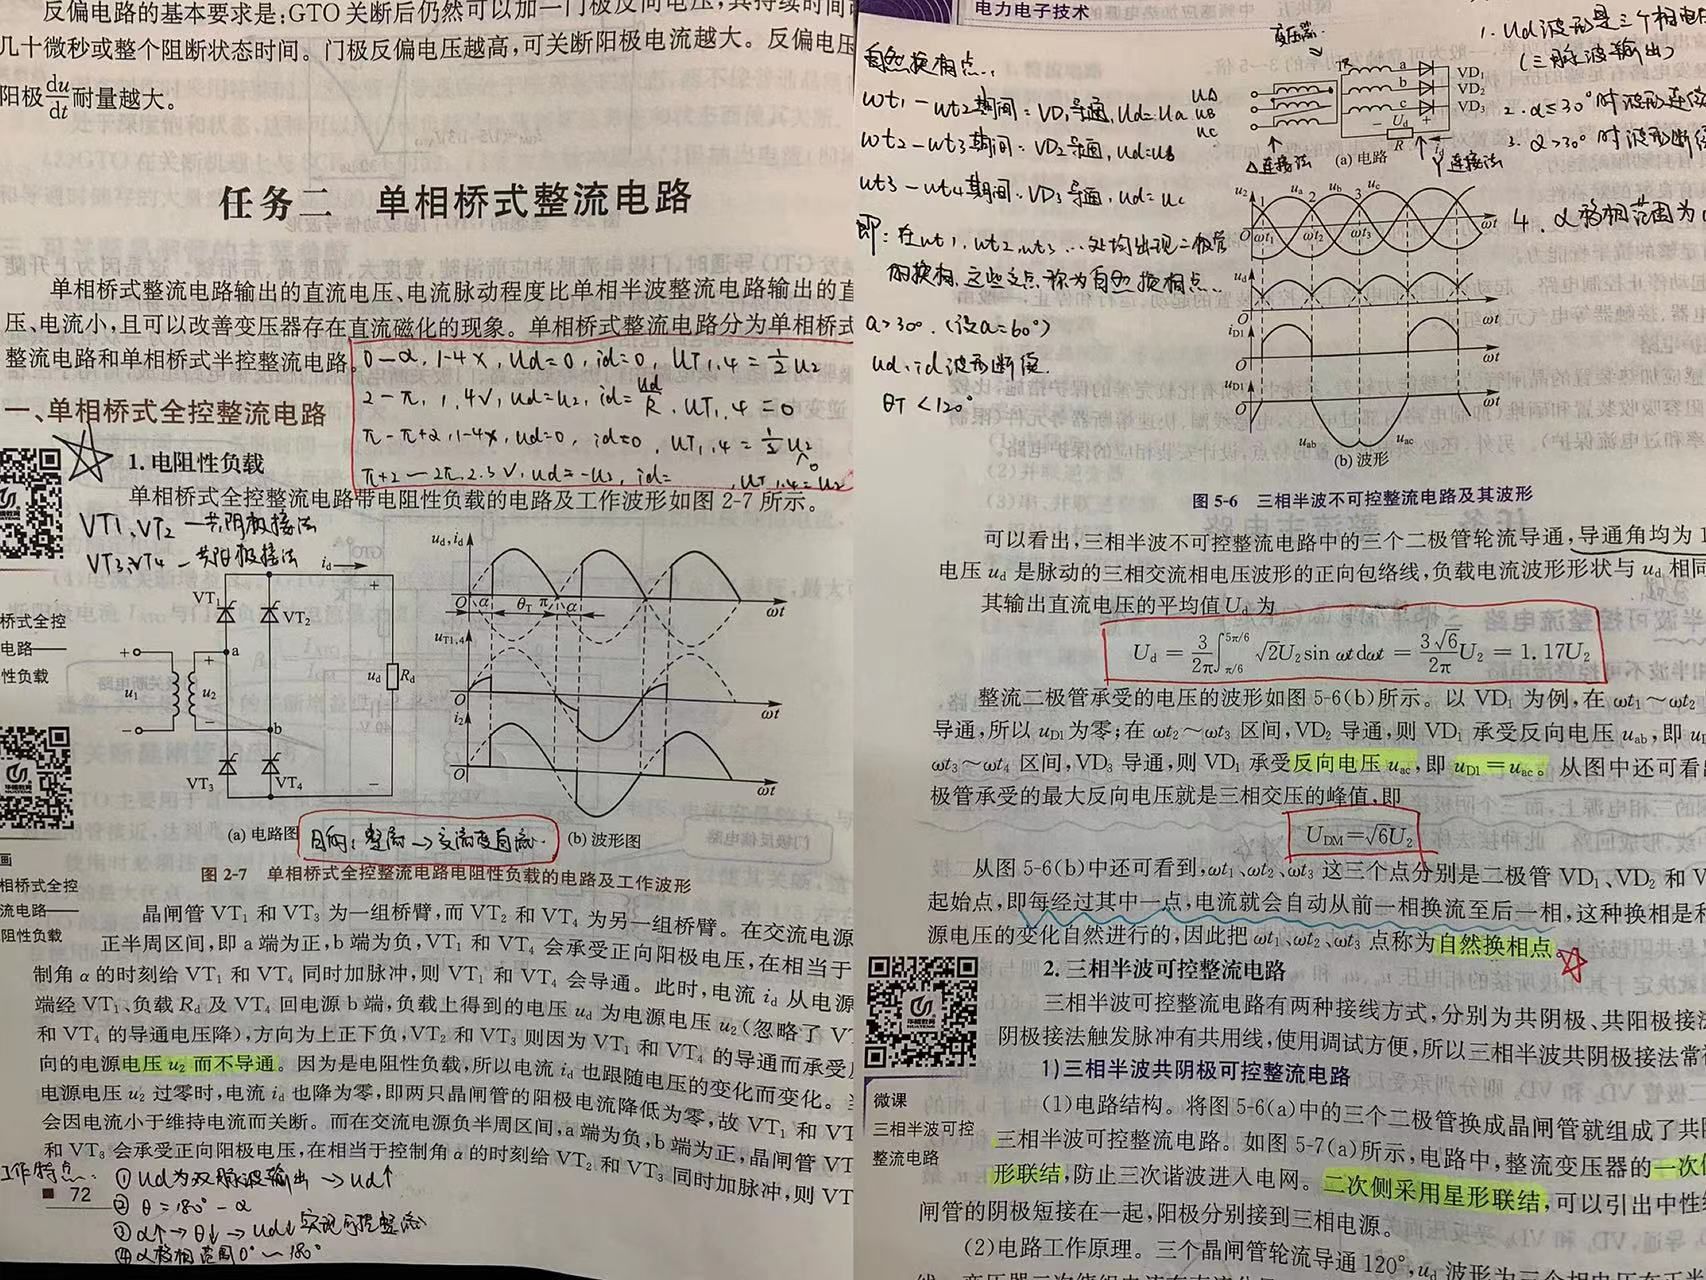 反偏电路的基本要求是:GTO关断后仍然可以加一门极反向电压,其持续时间
几十微秒或整个阻断状态时间。门极反偏电压越高,可关断阳极电流越大。反偏电压
阳极du/dt耐量越大。
任务二 单相桥式整流电路
单相桥式整流电路输出的直流电压、电流脉动程度比单相半波整流电路输出的直
压、电流小,且可以改善变压器存在直流磁化的现象。单相桥式整流电路分为单相桥式
整流电路和单相桥式半控整流电路。
0-α, 1-4×, ud=0, id=0, UT1,4=½u2
2-π, 1,4√, ud=u2, id=ud/R, UT1,4=0
π-π+2, 1-4×, ud=0, id=0, UT1,4=½u2
π+2-2π, 2.3√, ud=-u2, id= , UT1,4=u2
一、单相桥式全控整流电路
1. 电阻性负载
单相桥式全控整流电路带电阻性负载的电路及工作波形如图2-7所示。
VT1、VT2 — 共阴极接法
VT3、VT4 — 共阳极接法
桥式全控
电路——
性负载
id
VT1
VT2
a
u1
u2
ud
Rd
b
VT3
VT4
ud,id
O α θT π α ωt
uT1,4
O ωt
i2
O ωt
(a) 电路图
目的:整流→交流变直流
(b) 波形图
图2-7 单相桥式全控整流电路电阻性负载的电路及工作波形
画
相桥式全控
流电路——
阻性负载
晶闸管VT1和VT3为一组桥臂,而VT2和VT4为另一组桥臂。在交流电源
正半周区间,即a端为正,b端为负,VT1和VT4会承受正向阳极电压,在相当于
制角α的时刻给VT1和VT4同时加脉冲,则VT1和VT4会导通。此时,电流id从电源
端经VT1、负载Rd及VT4回电源b端,负载上得到的电压ud为电源电压u2(忽略了VT
和VT4的导通电压降),方向为上正下负,VT2和VT3则因为VT1和VT4的导通而承受
向的电源电压u2而不导通。因为是电阻性负载,所以电流id也跟随电压的变化而变化。
电源电压u2过零时,电流id也降为零,即两只晶闸管的阳极电流降低为零,故VT1和VT
会因电流小于维持电流而关断。而在交流电源负半周区间,a端为负,b端为正,晶闸管VT
和VT3会承受正向阳极电压,在相当于控制角α的时刻给VT2和VT3同时加脉冲,则VT
工作特点:
①Ud为双脉波输出→Ud↑
72
②θ=180°-α
③α↑→θ↓→Ud↓ 实现可控整流
④α移相范围0°~180°
电力电子技术
自然换相点:
ωt1-ωt2期间:VD1导通,Ud=Ua
ωt2-ωt3期间:VD2导通,Ud=UB
ωt3-ωt4期间:VD3导通,Ud=Uc
即:在ωt1、ωt2、ωt3…处均出现二极管
的换相,这些交点称为自然换相点.
α>30°.(设α=60°)
ud、id波形断续
θT<120°
变压器
UA
UB
UC
Tr
a VD1
b VD2
c VD3
Ud
R
id
△连接法
(a) 电路
Y连接法
1. Ud波形是三个相电
(三脉波输出)
2. α≤30°时波形连续
3. α>30°时波形断续
4. α移相范围为
u2 1 ua 2 ub 3 uc
O ωt1 ωt2 ωt3 ωt
ud
O ωt
iD1
O ωt
uD1
O ωt
uab uac
(b) 波形
图5-6 三相半波不可控整流电路及其波形
可以看出,三相半波不可控整流电路中的三个二极管轮流导通,导通角均为1
电压ud是脉动的三相交流相电压波形的正向包络线,负载电流波形形状与ud相同
其输出直流电压的平均值Ud为
Ud=3/2π∫π/6 5π/6 √2U2sin ωtdωt=3√6/2π U2=1.17U2
整流二极管承受的电压的波形如图5-6(b)所示。以VD1为例,在ωt1～ωt2
导通,所以uD1为零;在ωt2～ωt3区间,VD2导通,则VD1承受反向电压uab,即u
ωt3～ωt4区间,VD3导通,则VD1承受反向电压uac,即uD1=uac。从图中还可看
极管承受的最大反向电压就是三相交压的峰值,即
UDM=√6U2
从图5-6(b)中还可看到,ωt1、ωt2、ωt3这三个点分别是二极管VD1、VD2和V
起始点,即每经过其中一点,电流就会自动从前一相换流至后一相,这种换相是利
源电压的变化自然进行的,因此把ωt1、ωt2、ωt3点称为自然换相点。
2. 三相半波可控整流电路
三相半波可控整流电路有两种接线方式,分别为共阴极、共阳极接法
阴极接法触发脉冲有共用线,使用调试方便,所以三相半波共阴极接法常
1)三相半波共阴极可控整流电路
微课
三相半波可控
整流电路
(1)电路结构。将图5-6(a)中的三个二极管换成晶闸管就组成了共
三相半波可控整流电路。如图5-7(a)所示,电路中,整流变压器的一次
形联结,防止三次谐波进入电网。二次侧采用星形联结,可以引出中性
闸管的阴极短接在一起,阳极分别接到三相电源。
(2)电路工作原理。三个晶闸管轮流导通120°,ud波形为三个相电压在正半